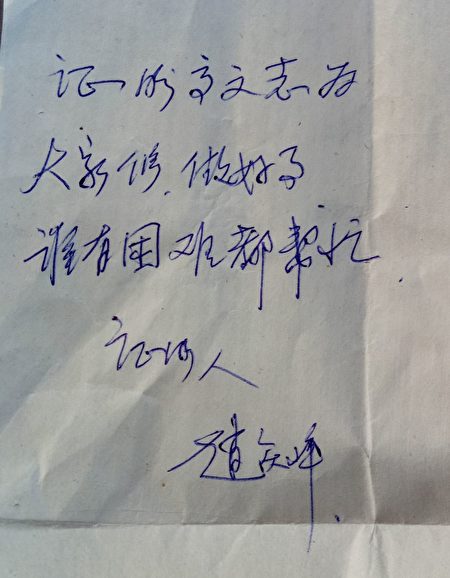 证明高文志为
大家伙.做好事
谁有困难都帮忙.
证明人
赵庆峰.